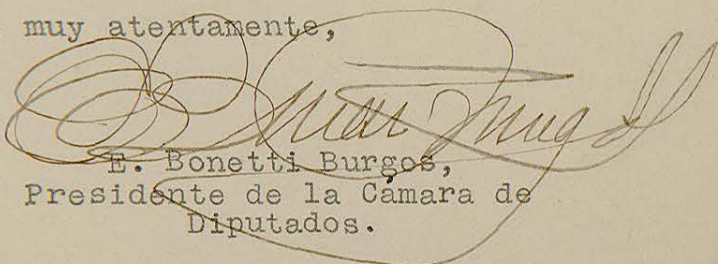 muy atentamente,
E. Bonetti Burgos,
Presidente de la Cámara de
Diputados.